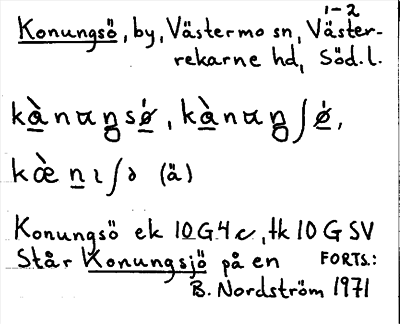 1-2
Konungsö, by, Västermo sn, Väster-
rekarne hd, Söd.l.
kànuŋsö́, kànuŋʃö́,
kæ̀nıʃ (ä)
Konungsö ek 10G4c, tk 10 G SV
Står Konungsjö på en FORTS.:
B. Nordström 1971